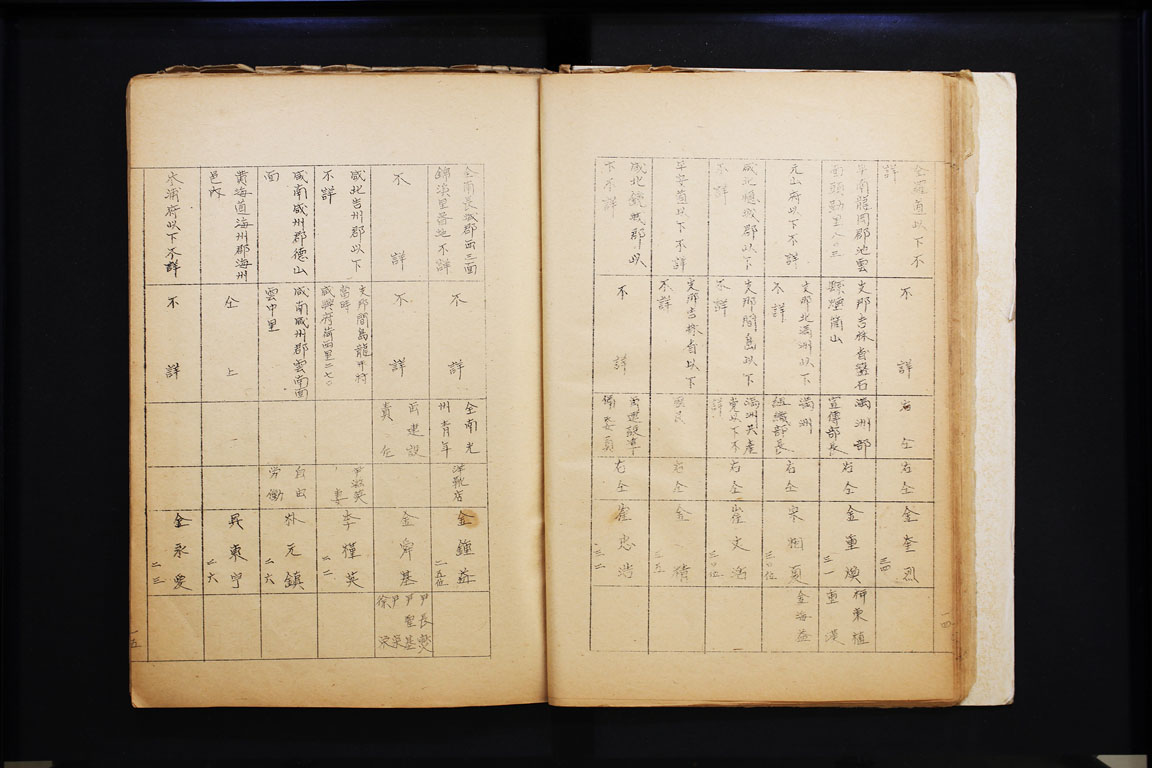 全羅道以下不
詳
不詳
右仝
右仝
金奎烈
三四
平南龍岡郡池雲
面頭勒里八〇三
支那吉林省盤石
縣煙筒山
満洲部
宣傳部長
右仝
金重煥
三一
元山府以下不詳
支那北満洲以下
不詳
満洲
組織部長
右仝
宋烟夏
三〇位
金海益
咸北穏城郡以下
不詳
支那間島以下
不詳
満洲共産
党以下不
詳
右仝
崔文浩
三〇位
平安道以下不詳
支那吉林省以下
不詳
右仝
三五
咸北鏡城郡以
下不詳
不詳
右仝
崔忠浩
三二
一四
全南長城郡西三面
錦渓里番地不詳
不詳
全南光
州青年
洋靴店
金鐘益
二五位
不詳
不詳
再建設
責任
咸北吉州郡以下
不詳
支那間島龍井村
當時
咸興府荷西里二七〇
尹淑英
妻
李槿英
二二
咸南咸州郡德山
面
咸南咸州郡雲南面
雲中里
自由
労働
朴元鎮
二六
黄海道海州郡海州
邑内
仝上
呉東宁
二六
木浦府以下不詳
不詳
金永愛
二三
一五